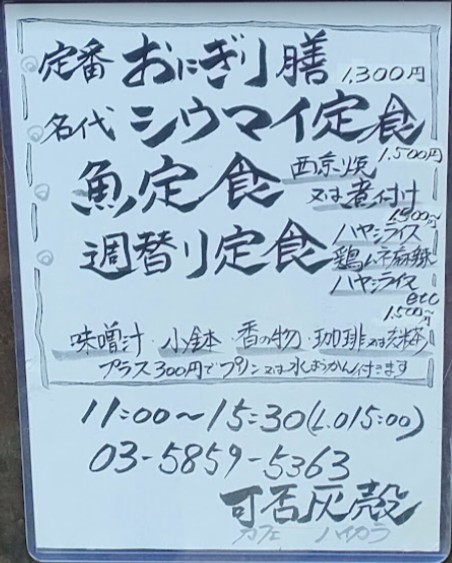 定番 おにぎり膳 1.300円
名代 シウマイ定食
1.500円
魚定食 西京焼
又は煮付け
週替り定食
ハヤシライス
鶏ムネ
ハヤシライス
etc
1.500〜
味噌汁・小鉢・香の物・珈琲又は
プラス300円でプリン又は水ようかん付きます
11:00〜15:30(L.O15:00)
03-5859-5363
可否灰殻
カフェ ハイカラ